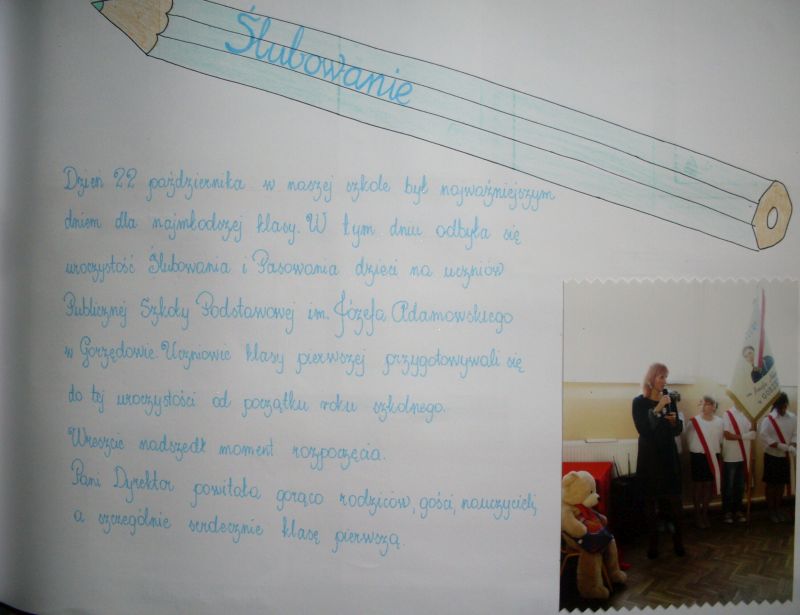 Ślubowanie
Dzień 22 października w naszej szkole był najważniejszym
dniem dla najmłodszej klasy. W tym dniu odbyła się
uroczystość Ślubowania i Pasowania dzieci na uczniów
Publicznej Szkoły Podstawowej im. Józefa Adamowskiego
w Gorzędowie. Uczniowie klasy pierwszej przygotowywali się
do tej uroczystości od początku roku szkolnego.
Wreszcie nadszedł moment rozpoczęcia.
Pani Dyrektor powitała gorąco rodziców, gości, nauczycieli,
a szczególnie serdecznie klasę pierwszą.